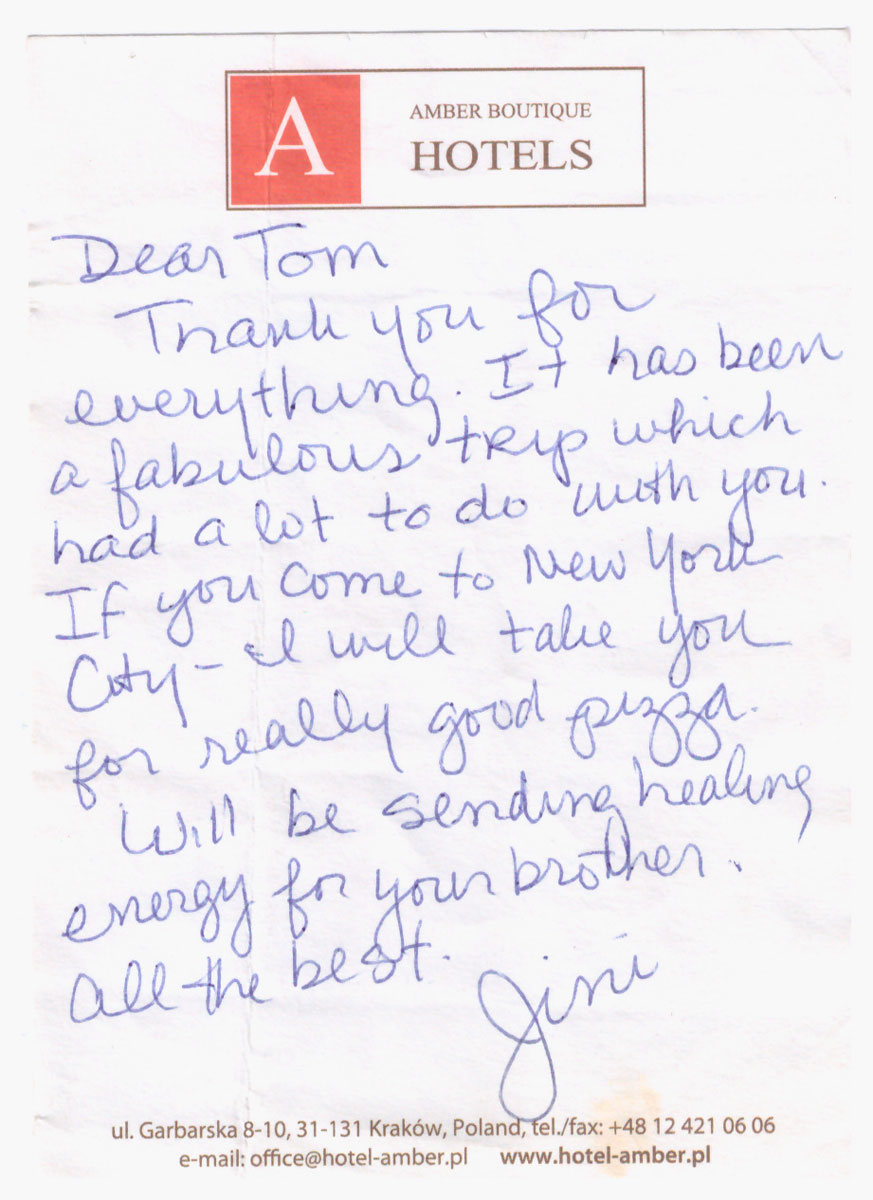 A
AMBER BOUTIQUE
HOTELS
Dear Tom
Thank you for
everything. It has been
a fabulous trip which
had a lot to do with you.
If you come to New York
City - I will take you
for really good pizza.
Will be sending healing
energy for your brother.
All the best.
Jini
ul. Garbarska 8-10, 31-131 Kraków, Poland, tel./fax: +48 12 421 06 06
e-mail: office@hotel-amber.pl www.hotel-amber.pl